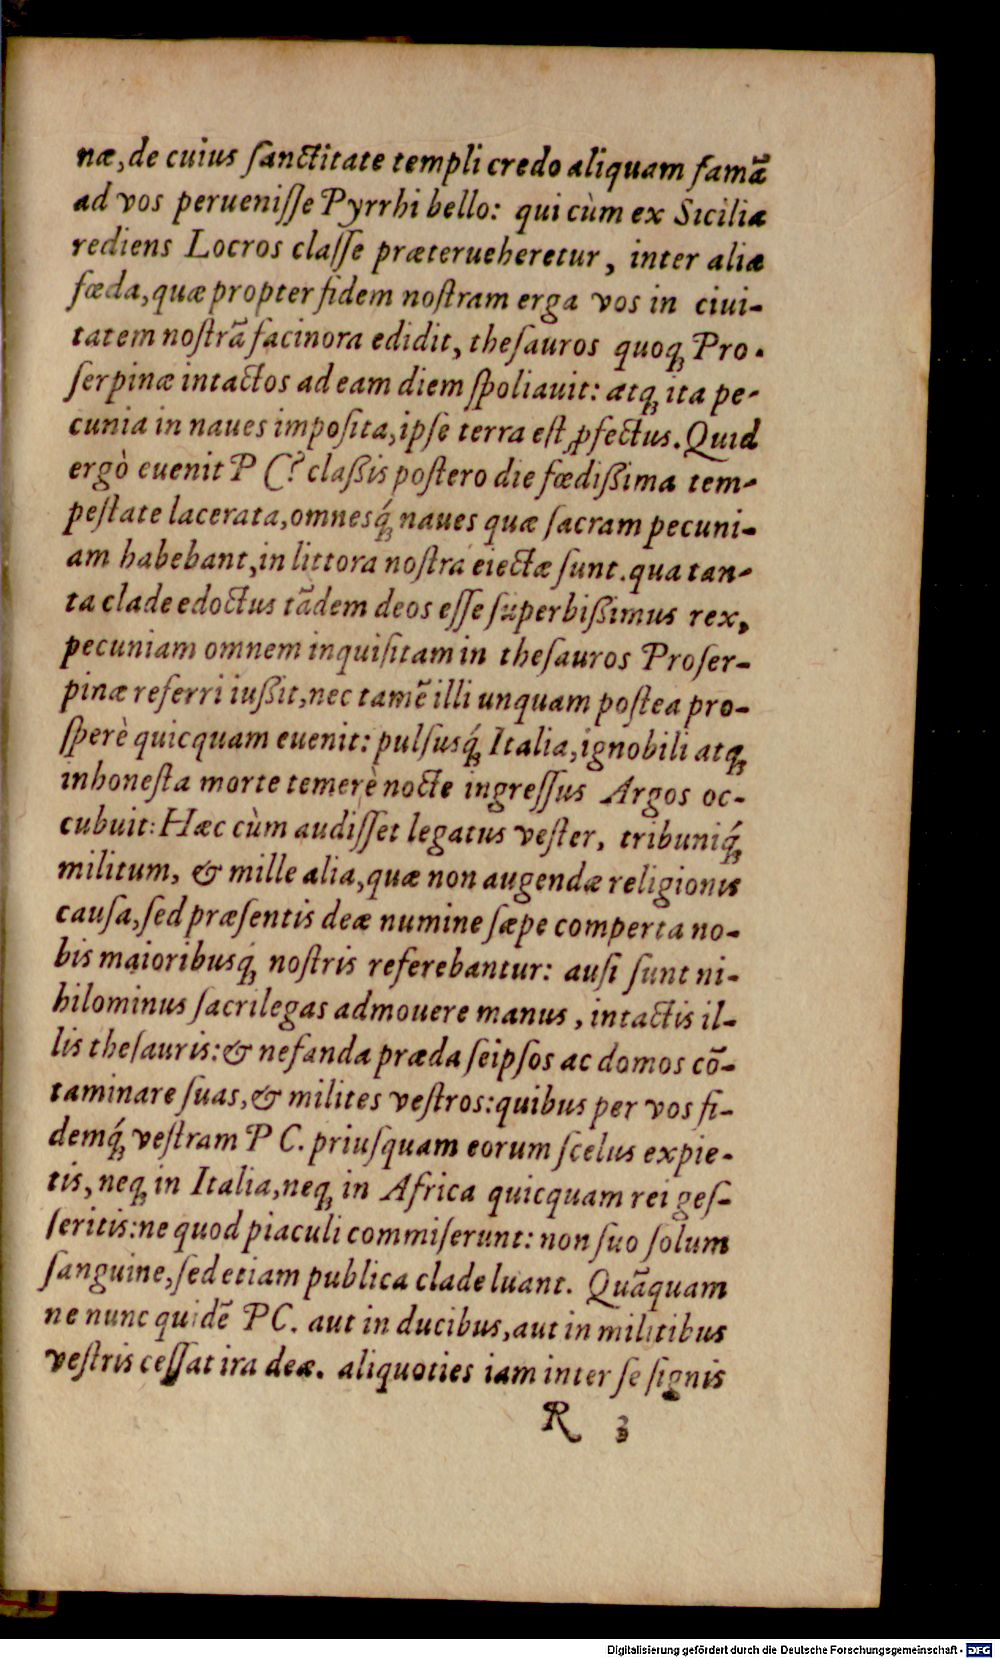 næ, de cuius ſanctitate templi credo aliquam famã
ad vos perueniſſe Pyrrhi bello: qui cùm ex Sicilia
rediens Locros claſſe præterueheretur, inter alia
fœda, quæ propter fidem noſtram erga vos in ciui-
tatem noſtrã facinora edidit, theſauros quoqꝫ Pro-
ſerpinæ intactos ad eam diem ſpoliauit: atqꝫ ita pe-
cunia in naues impoſita, ipſe terra eſt ꝓfectus. Quid
ergò euenit P C? claßis poſtero die fœdißima tem-
peſtate lacerata, omnesqꝫ́ naues quæ ſacram pecuni-
am habebant, in littora noſtra eiectæ ſunt. qua tan-
ta clade edoctus tãdem deos eſſe ſuperbißimus rex,
pecuniam omnem inquiſitam in theſauros Proſer-
pinæ referri iußit, nec tamẽ illi unquam poſtea pro-
ſperè quicquam euenit: pulſusqꝫ́ Italia, ignobili atqꝫ
inhoneſta morte temerè nocte ingreſſus Argos oc-
cubuit: Hæc cùm audiſſet legatus veſter, tribuniqꝫ́
militum, & mille alia, quæ non augendæ religionis
cauſa, ſed præſentis deæ numine ſæpe comperta no-
bis maioribusqꝫ́ noſtris referebantur: auſi ſunt ni-
hilominus ſacrilegas admouere manus, intactis il-
lis theſauris: & nefanda præda ſeipſos ac domos cõ-
taminare ſuas, & milites veſtros: quibus per vos fi-
demqꝫ́ veſtram P C. priuſquam eorum ſcelus expie-
tis, neqꝫ in Italia, neqꝫ in Africa quicquam rei geſ-
ſeritis: ne quod piaculi commiſerunt: non ſuo ſolum
ſanguine, ſed etiam publica clade luant. Quãquam
ne nunc quidẽ P C. aut in ducibus, aut in militibus
veſtris ceſſat ira deæ. aliquoties iam inter ſe ſignis
R 3
Digitalisierung gefördert durch die Deutsche Forschungsgemeinschaft - DFG